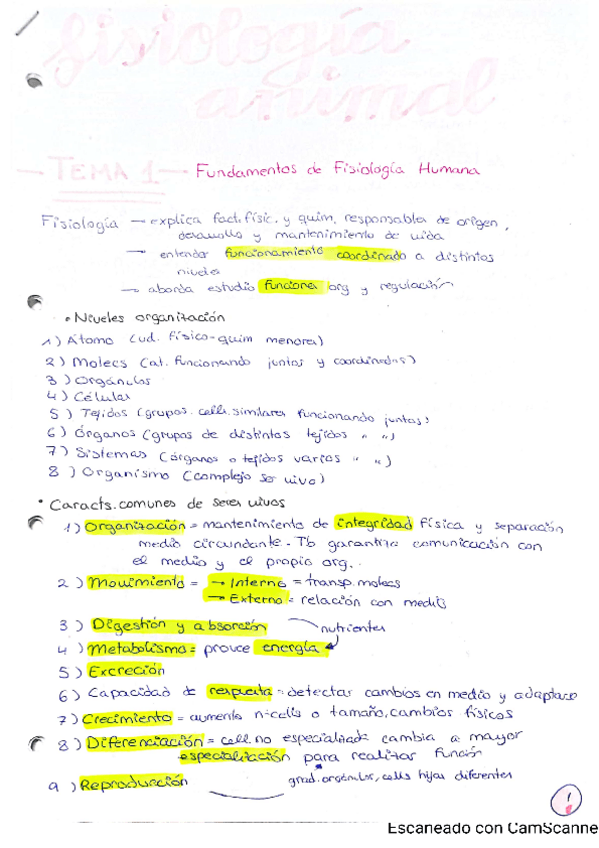 fisiología
animal
— TEMA 1 — Fundamentos de Fisiología Humana
Fisiología → explica fact. físic. y quím. responsables de origen,
desarrollo y mantenimiento de vida
→ entender funcionamiento coordinado a distintos
niveles
→ aborda estudio funciones org y regulación
• Niveles organización
1) Átomo (ud. físico-quim menores)
2) Molecs (at. funcionando juntos y coordinados)
3) Orgánulos
4) Célula
5) Tejidos (grupos. cells. similares funcionando juntas)
6) Órganos (grupos de distintos tejidos " ")
7) Sistemas (órganos o tejidos varios " ")
8) Organismo (complejo ser vivo)
• Caracts. comunes de seres vivos
1) Organización = mantenimiento de integridad física y separación
medio circundante. Tb garantiza comunicación con
el medio y el propio org.
2) Movimiento = → Interno = transp. molecs
→ Externo = relación con medio
3) Digestión y absorción
nutrientes
4) Metabolismo = prouce energía
5) Excreción
6) Capacidad de respuesta = detectar cambios en medio y adaptarse
7) Crecimiento = aumento nº cells o tamaño, cambios físicos
8) Diferenciación = cell. no especializada cambia a mayor
especialización para realizar función
9) Reproducción
orgánulos, cells hijas diferentes
1
Escaneado con CamScanne